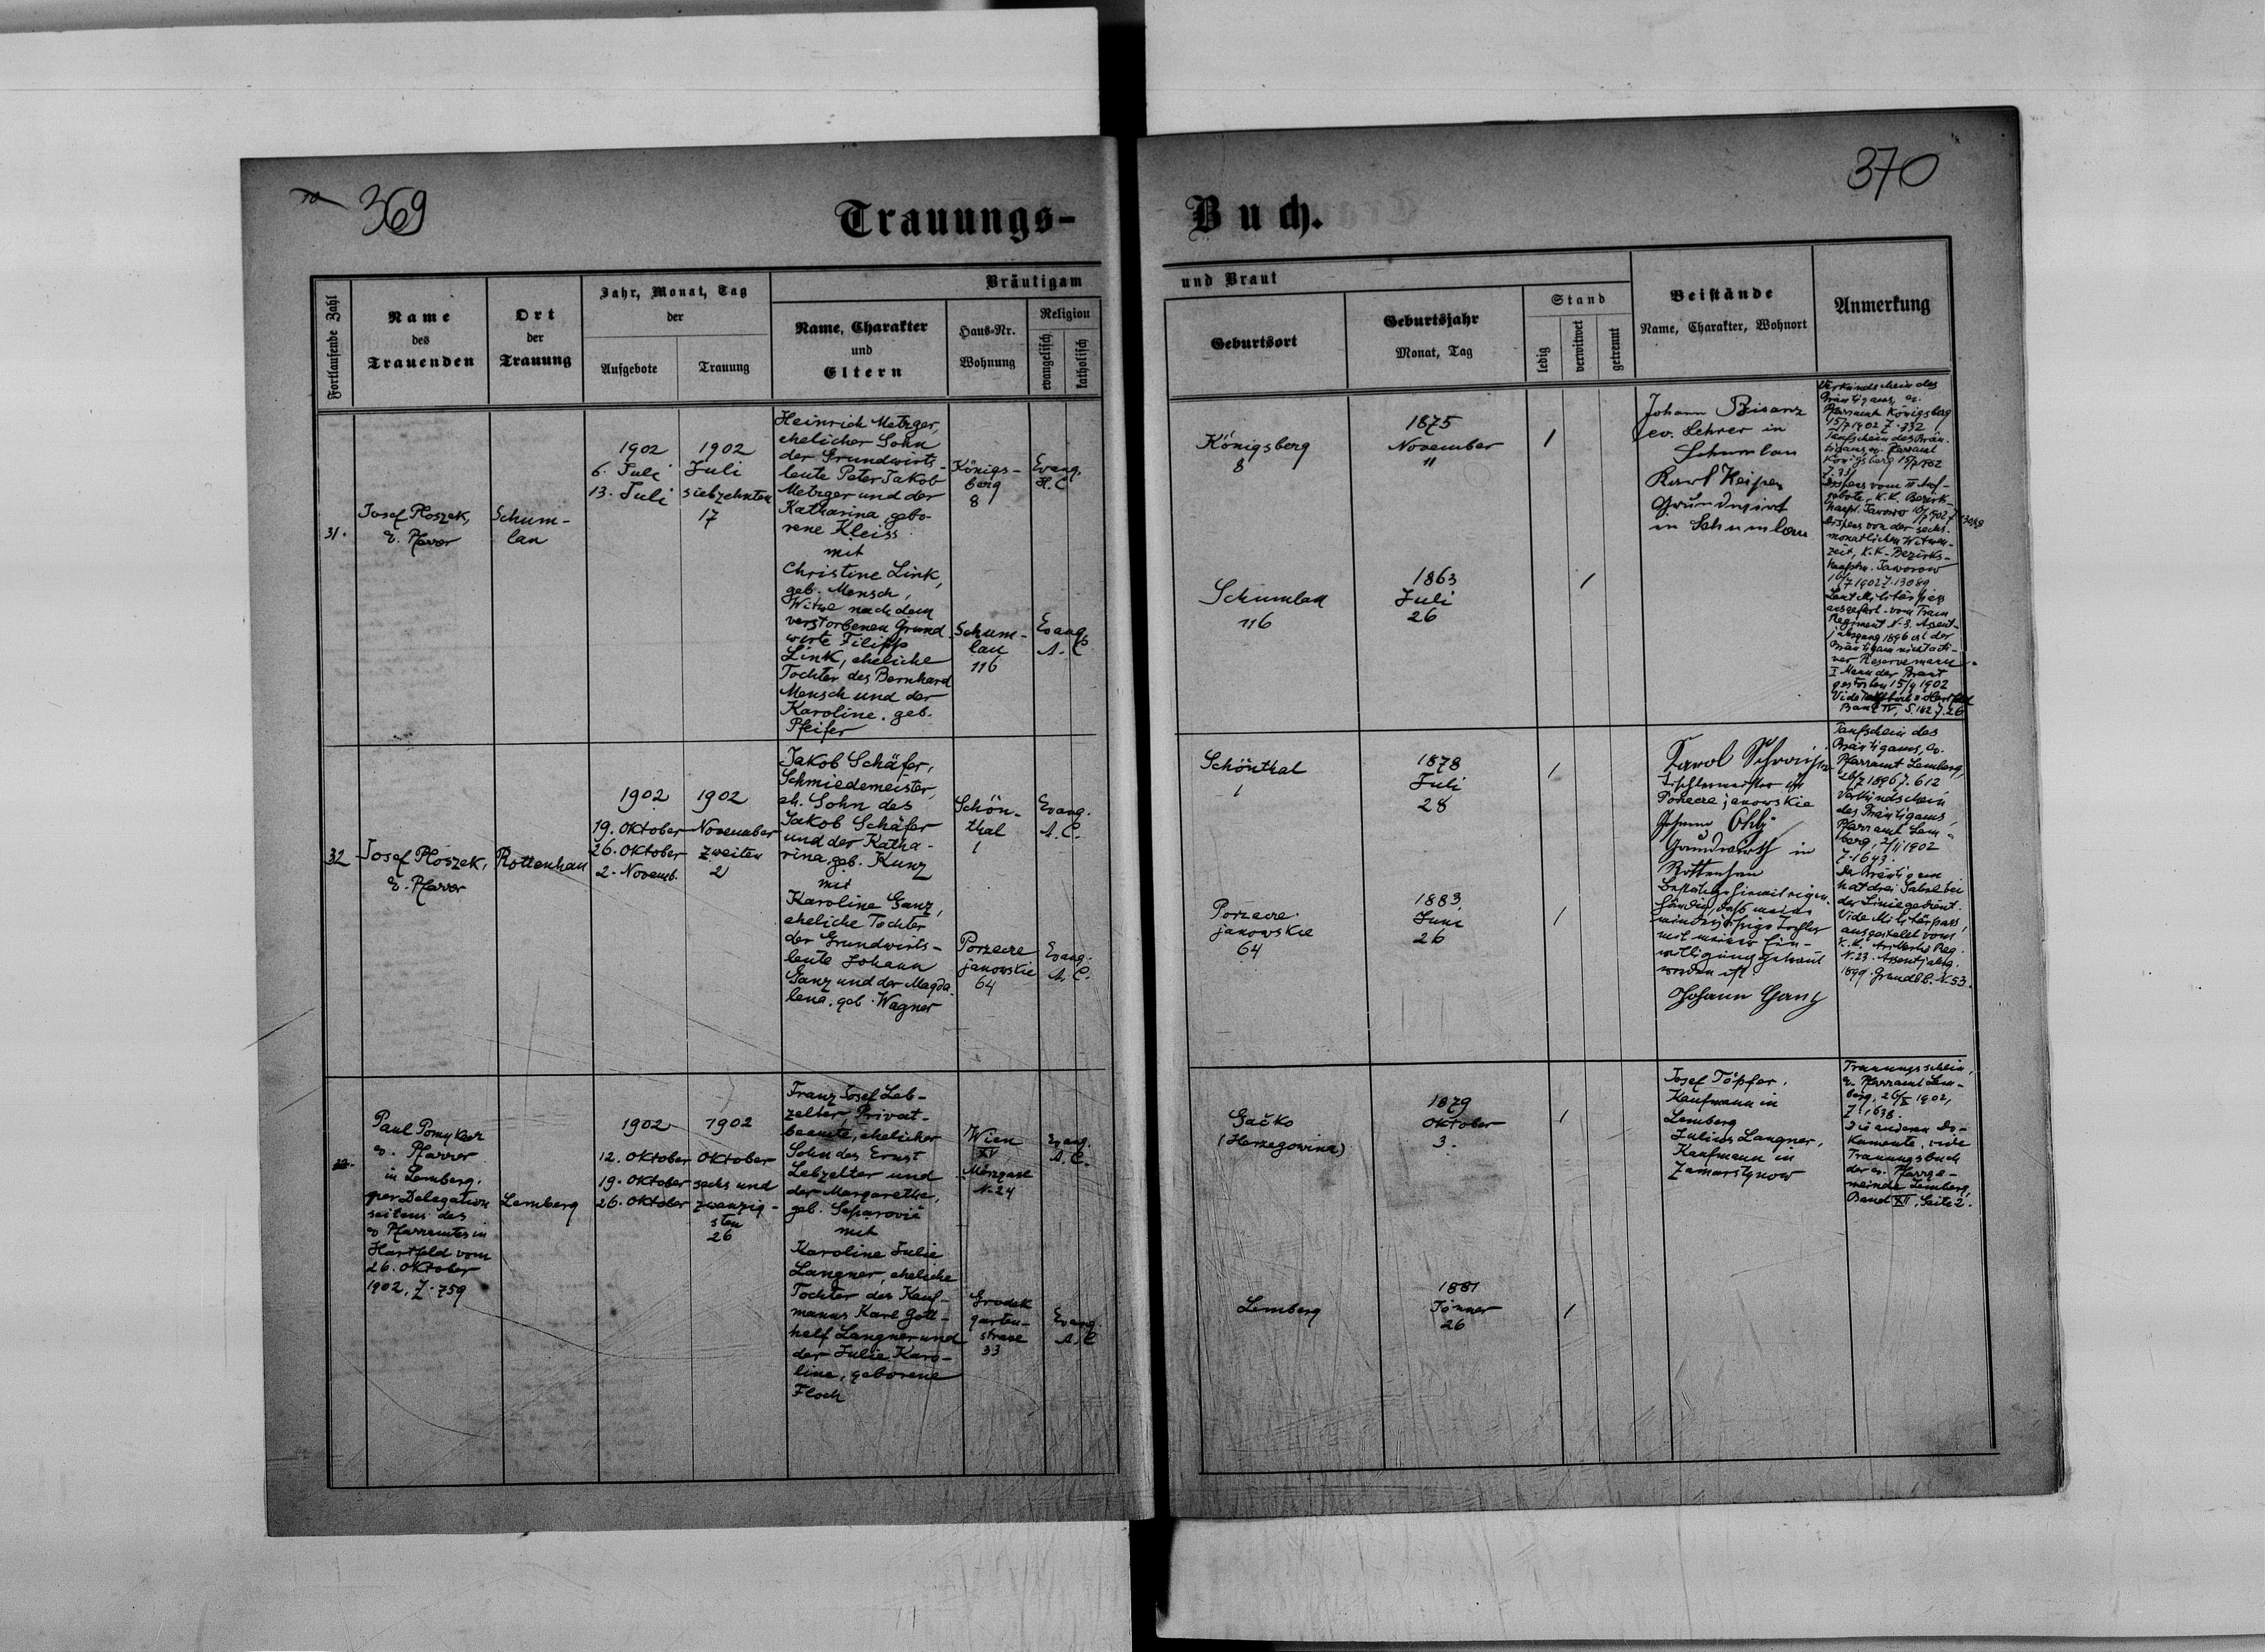 369
370
Trauungs-
Buch.
Fortlaufende Zahl
Name
des
Trauenden
Ort
der
Trauung
Jahr, Monat, Tag
der
Aufgebote
Trauung
Bräutigam
und Braut
Name, Charakter
und
Eltern
Haus-Nr.
Wohnung
Religion
evangelisch
katholisch
Geburtsort
Geburtsjahr
Monat, Tag
Stand
ledig
verwitwet
getrennt
Beistände
Name, Charakter, Wohnort
Anmerkung
31.
Josef Ploszek,
e. Pfarrer
Schum-
lau
1902
6. Juli
13. Juli
1902
Juli
siebzehnten
17
Heinrich Metzger,
ehelicher Sohn
der Grundwirts-
leute Peter Jakob
Metzger und der
Katharina, gebo-
rene Kleiss
mit
Christine Link,
geb. Mensch,
Witwe nach dem
verstorbenen Grund-
wirte Filipp
Link, eheliche
Tochter des Bernhard
Mensch und der
Karoline, geb.
Pfeifer
Königs-
berg
8
Evang.
H. C.
Schum-
lau
116
Evang.
A. C.
Königsberg
8
1875
November
11
1
Schumlau
116
1863
Juli
26
1
Johann Bisanz
ev. Lehrer in
Schumlau
Karl
Grundwirt
in Schumlau
Verkündschein des
Bräutigams, ev.
Pfarramt Königsberg
15/7 1902 Z. 332
Taufschein des Bräu-
tigams, ev. Pfarramt
Königsberg 15/7 1902
Z. 331
Dispens vom III Auf-
gebote, K.K. Bezirk-
hauptm. Jaworow 16/7 1902 Z. 13089
Dispens von der sechs-
monatlichen Witwen-
zeit, K.K. Bezirks-
hauptm. Jaworow
16/7 1902 Z. 13089.
Laut Militärpass
ausgefert. vom Train
Regiment N. 3. Assent-
jahrgang 1896 ist der
Bräutigam nicht acti-
ver Reservemann.
I Mann der Braut
gestorben 15/4 1902
Band IV, S. 162 Z. 26
32
Josef Ploszek,
e. Pfarrer
Rottenhan
1902
19. Oktober
26. Oktober
2. Novemb.
1902
November
zweiten
2
Jakob Schäfer,
Schmiedemeister,
eh. Sohn des
Jakob Schäfer
und der Katha-
rina, geb. Kunz
mit
Karoline Ganz,
eheliche Tochter
der Grundwirts-
leute Johann
Ganz und der Magda-
lena, geb. Wagner
Schön-
thal
1
Evang.
A. C.
Porzecze
janowskie
64
Evang.
A. C.
Schönthal
1
1878
Juli
28
1
Porzecze
janowskie
64
1883
Juni
26
1
Karol
Tischlermeister in
Porzecze janowskie
Johann
Grundwirth in
Rottenhan
Bestätige hiemit eigen-
händig, daß meine
minderjährige Tochter
mit meiner Ein-
willigung getraut
worden ist.
Johann Ganz
Taufschein des
Bräutigams, ev.
Pfarramt Lemberg,
26/7 1896 Z. 612
Verkündschein
des Bräutigams,
Pfarramt Lem-
berg, 2/11 1902
Z. 1643.
Der Bräutigam
hat drei Jahre bei
der Linie gedient.
Vide Militärpass,
ausgestellt vom
K.K. Artillerie Reg.
N. 23. Assentjahrg.
1899. Grundb. B. N. 53.
Paul Pomykacz
ev. Pfarrer
in Lemberg,
per Delegation
seitens des
ev Pfarramtes in
Hartfeld vom
26. Oktober
1902, Z. 759
Lemberg
1902
12. Oktober
19. Oktober
26. Oktober
1902
Oktober
sechs und
zwanzig-
sten
26
Franz Josef Leb-
zelter, Privat-
beamte, ehelicher
Sohn des Ernst
Lebzelter und
der Margarethe,
geb. Separović
mit
Karoline Julie
Langner, eheliche
Tochter des Kauf-
manns Karl Gott-
helf Langner und
der Julie Karo-
line, geborene
Floch
Wien
XV
N. 24
Evang.
A. C.
Grodek
garten-
strasse
33
Evang.
A. C.
Gačko
(Herzegowina)
1879
Oktober
3.
1
Lemberg
1881
Jänner
26
1
Josef Töpfer,
Kaufmann in
Lemberg
Julius Langner,
Kaufmann in
Zamarstynow
Trauungsschein,
ev. Pfarramt Lem-
berg, 26/X 1902,
Z. 1638.
Die anderen Do-
kumente, vide
Trauungsbuch
der ev. Pfarrge-
meinde Lemberg,
Band XII, Seite 2.